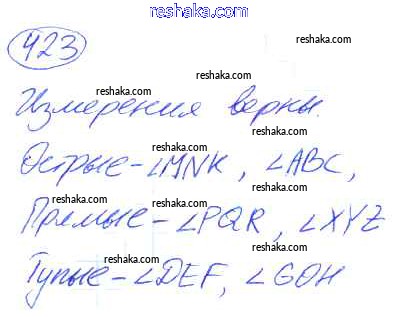 reshaka.com
423
reshaka.com
reshaka.com
reshaka.com
reshaka.com
Измерения верны.
reshaka.com
reshaka.com
reshaka.com
Острые - ∠MNK, ∠ABC,
reshaka.com
reshaka.com
Прямые - ∠PQR, ∠XYZ
reshaka.com
reshaka.com
Тупые - ∠DEF, ∠GOH
reshaka.com
reshaka.com